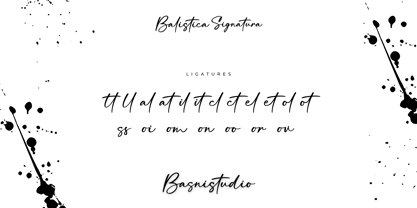 Balistica Signatura
LIGATURES
tt ll al at il it el et cl ct ol ot
ss oi om on oo or ov
Basnistudio